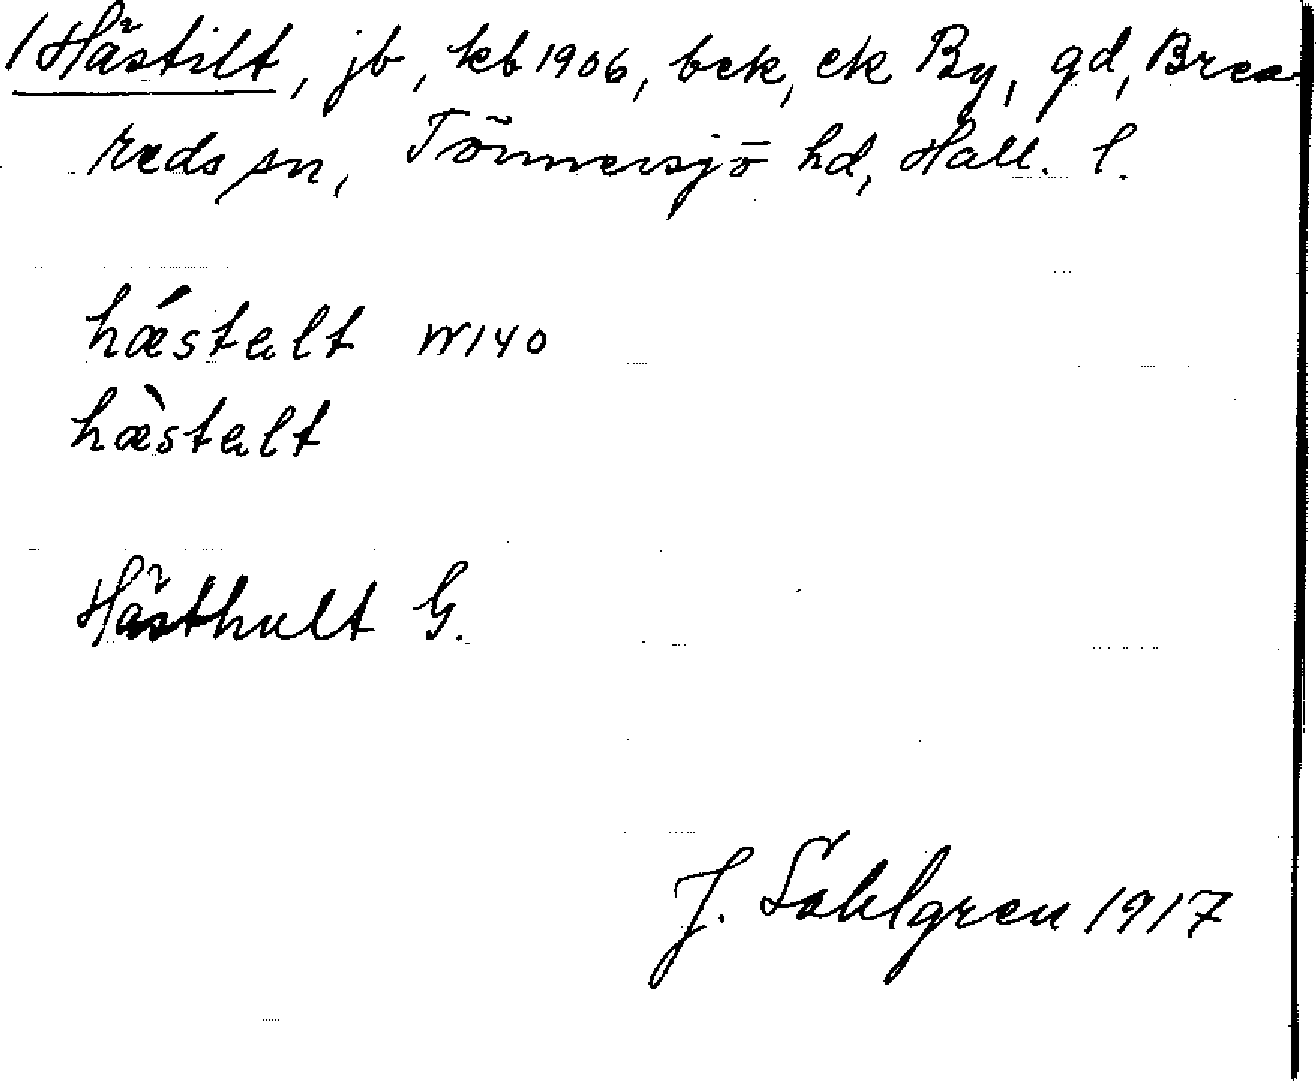 1 Hästilt, jb, kb 1906, bck, ek By, gd, Brea-
reds sn, Tönnersjö hd, Hall. l.
hǽstalt W140
hæ̀stalt
Hästhult G.
J. Sahlgren 1917